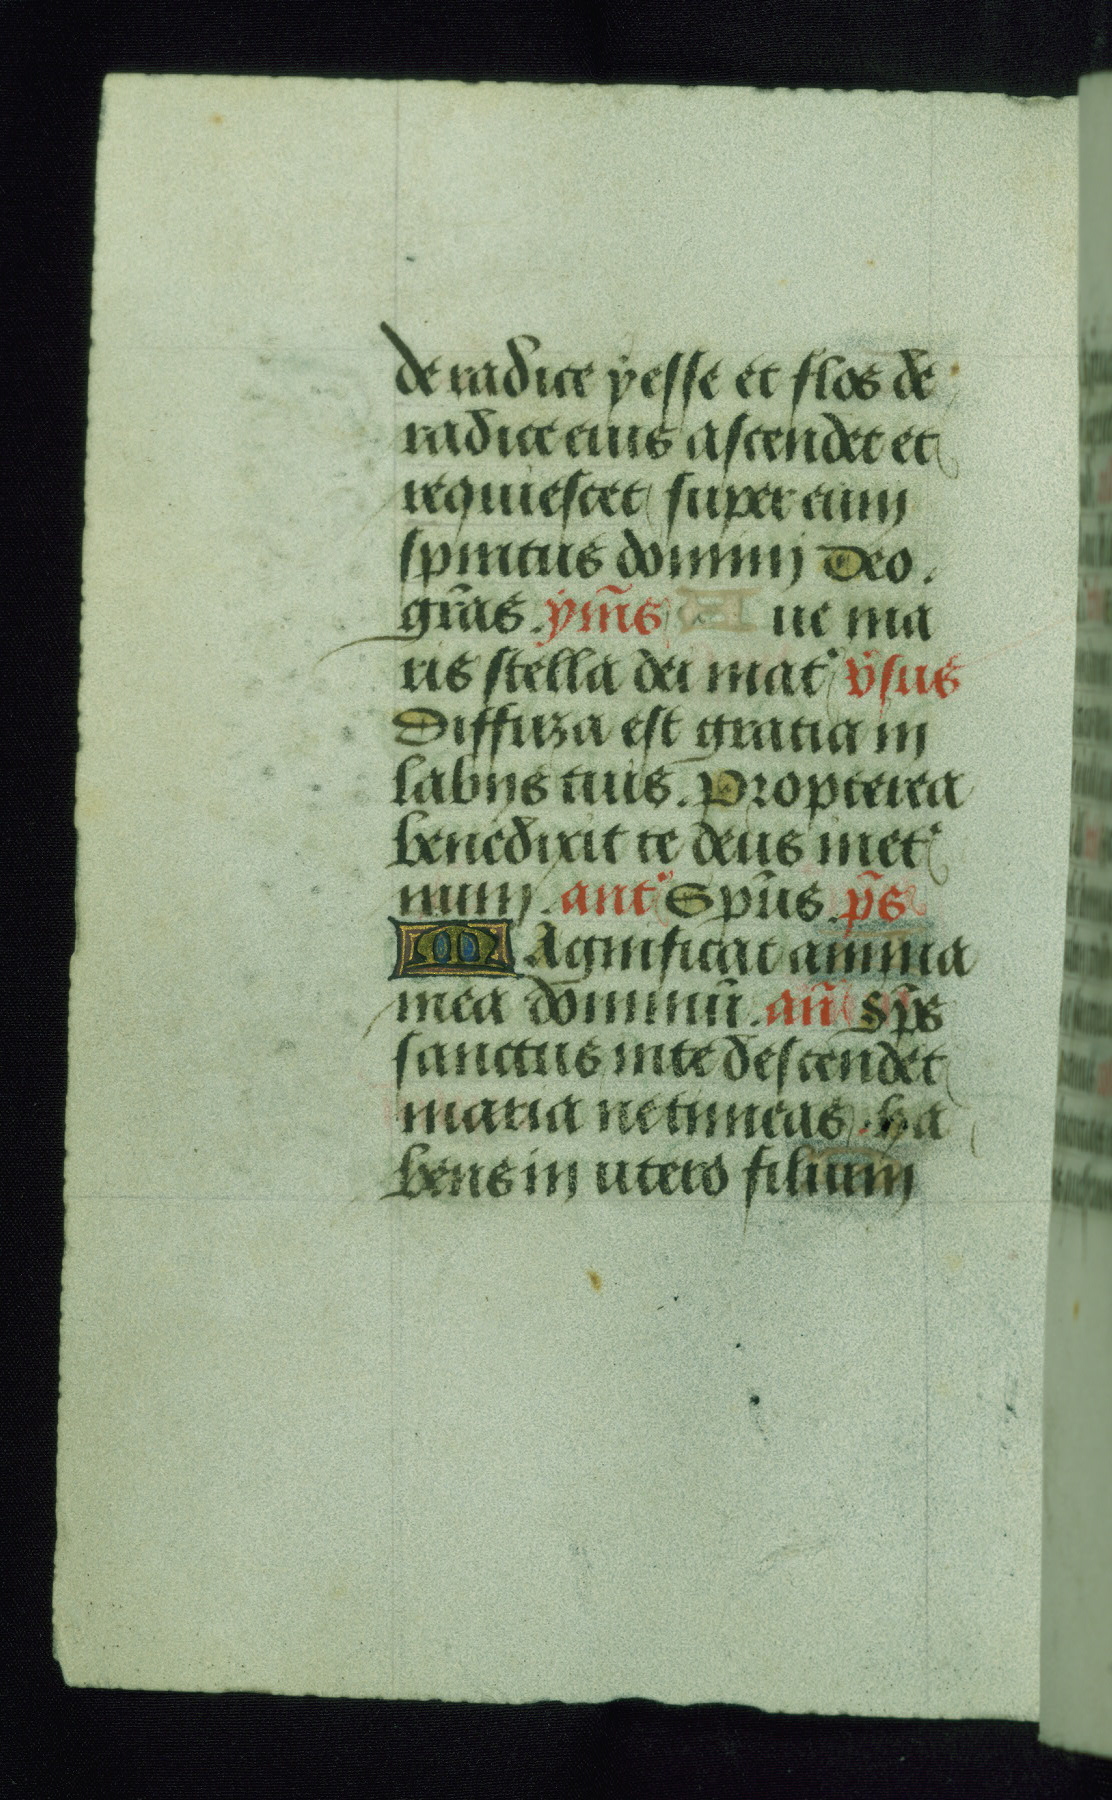 de radice yesse et flos de
radice eius ascendet et
requiescet super eum
spiritus dominj Deo.
gr̃as. ym̃s ue ma
ris stella dei mat᷒ v̄sus
Diffuza est gratia in
labijs tuis. Propterea
benedixit te deus inet᷒
num. ant᷒ Sp̃us. p̄s
MAgnificat anima
mea dominũ. añ Sp̄s
sanctus inte descendet
maria ne timeas. ha
bens in utero filium